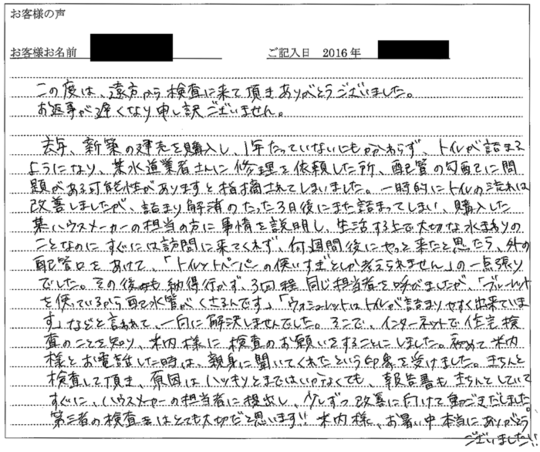 お客様の声
お客様お名前 ご記入日 2016年
この度は、遠方から検査に来て頂きありがとうございました。
お返事が遅くなり申し訳ございません。
去年、新築の建売を購入し、1年たっていないにもかかわらず、トイレが詰まる
ようになり、某水道業者さんに修理を依頼した所、配管の勾配に問
題がある可能性がありますと指摘されてしまいました。一時的にトイレの流れは
改善しましたが、詰まり解消のたった3日後にまた詰まってしまい、購入した
某ハウスメーカーの担当の方に事情を説明し、生活する上で大切な水まわりの
ことなのにすぐには訪問に来てくれず、何週間後にやっと来たと思ったら、外の
配管口をあけて、「トイレットペーパーの使いすぎとしか考えられません」の一点張り
でした。その後も納得行かず、3回程同じ担当者を呼びましたが、「ブルーレット
を使っているから配水管がくさるんです」「ウォシュレットはトイレが詰まりやすく出来ていま
す」などと言われて、一向に解決しませんでした。そこで、インターネットで住宅検
査のことを知り、木内様に検査のお願いをすることにしました。初めて木内
様とお電話した時は、親身に聞いてくれたという印象を受けました。きちんと
検査して頂き、原因はハッキリとまではいかなくても、報告書もきちんとしていて
すぐに、ハウスメーカーの担当者に提出し、少しずつ改善に向けて動きだしました。
第三者の検査はとても大切だと思います!! 木内様、お暑い中本当にありがとう
ございました!!